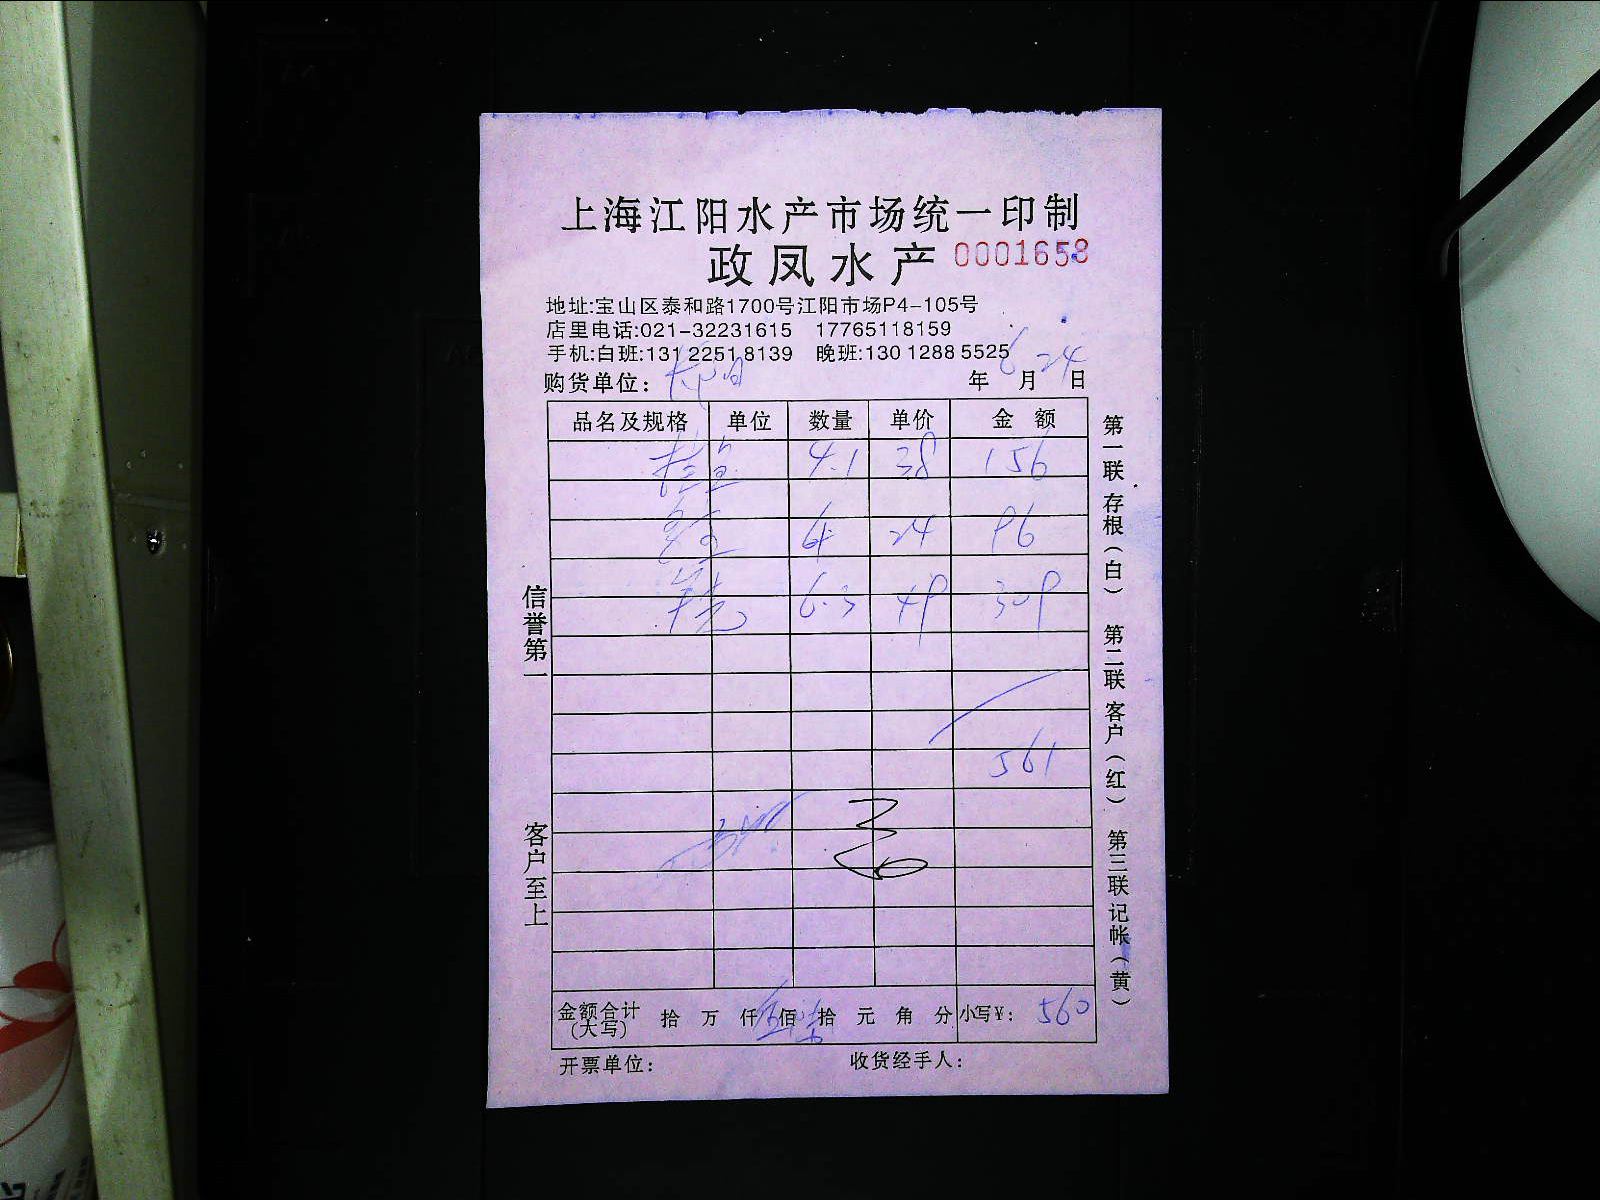 上海江阳水产市场统一印制
政凤水产 0001658
地址:宝山区泰和路1700号江阳市场P4-105号
店里电话:021-32231615 17765118159
手机:白班:131 2251 8139 晚班:130 1288 5525
购货单位: 年 6 月 24 日
品名及规格 单位 数量 单价 金 额
4.1 38 156
24 96
6.3 49 309
561
金额合计(大写) 拾 万 仟 佰 拾 元 角 分 小写¥: 560
开票单位: 收货经手人:
信誉第一
客户至上
第一联 存根(白) 第二联 客户(红) 第三联 记帐(黄)